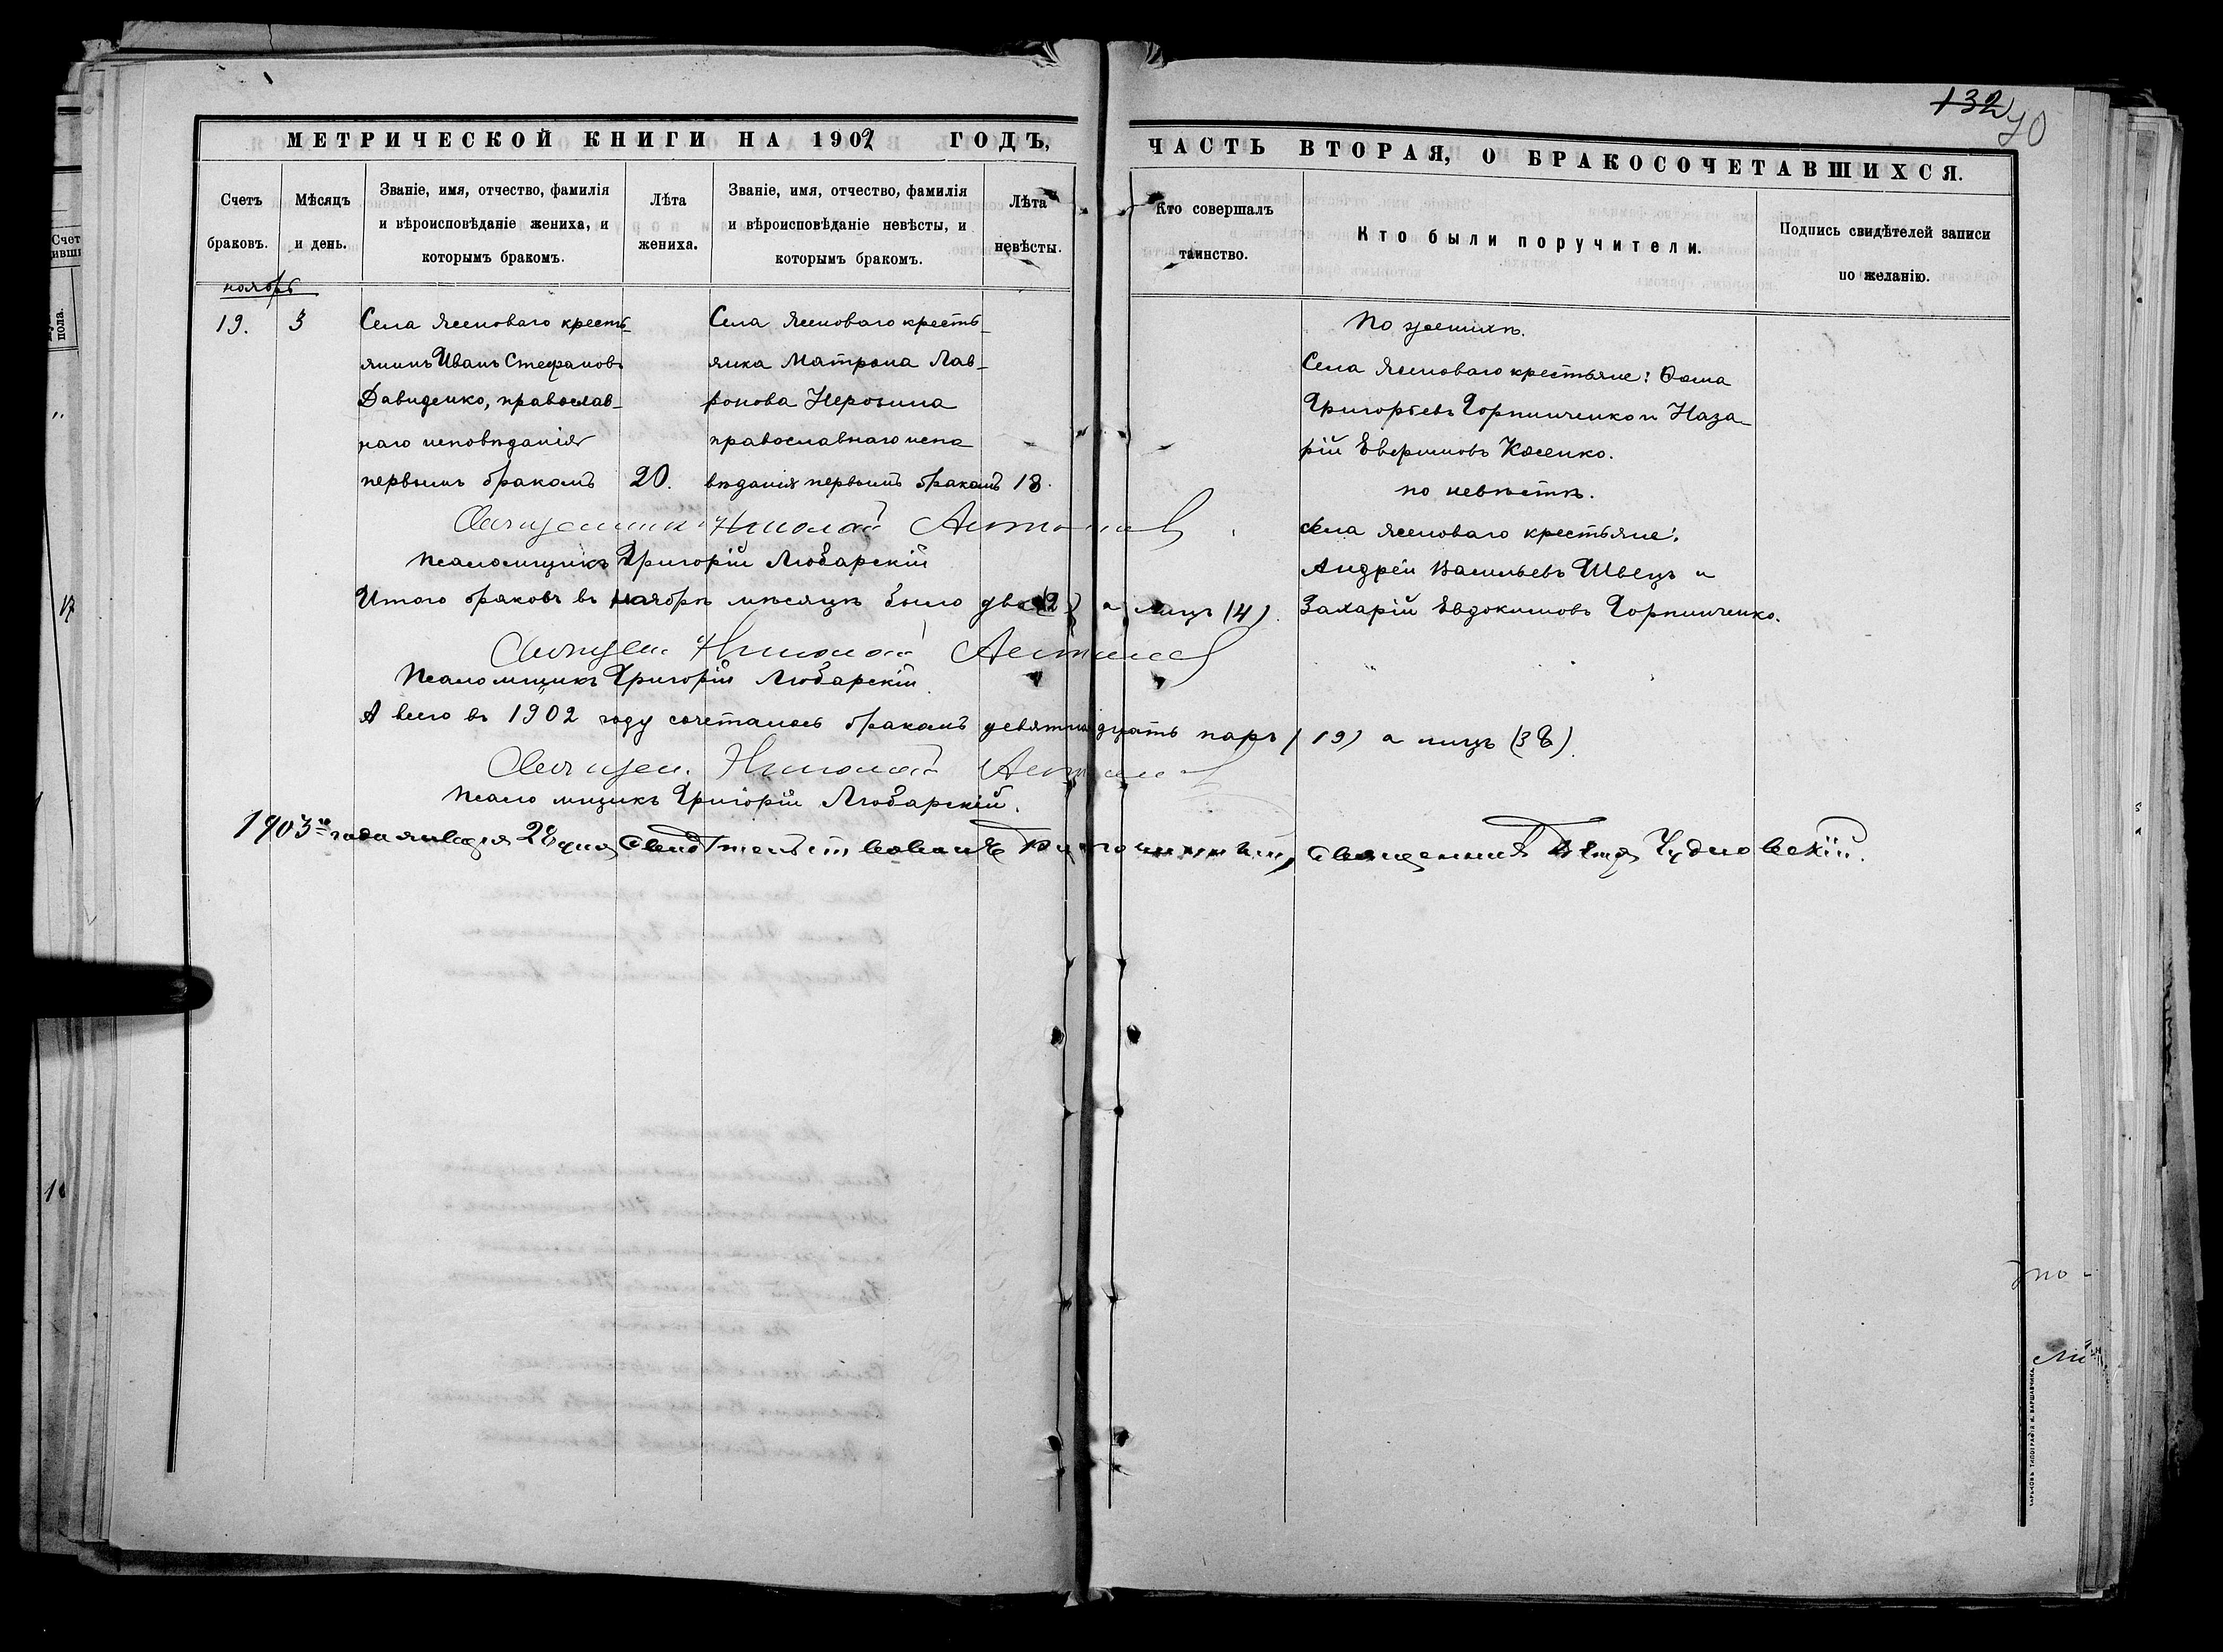 132
70
МЕТРИЧЕСКОЙ КНИГИ НА 1902 ГОДЪ,
Счетъ браковъ.
Мѣсяцъ и день.
Званіе, имя, отчество, фамилія
и вѣроисповѣданіе жениха, и
которымъ бракомъ.
Лѣта
жениха.
Званіе, имя, отчество, фамилія
и вѣроисповѣданіе невѣсты, и
которымъ бракомъ.
Лѣта
невѣсты.
ноябрь
19.
3
Села Ясеноваго кресть-
янинъ Иванъ Стефановъ
Давиденко, православ-
наго исповѣданія
первымъ бракомъ
20.
Села Ясеноваго кресть-
янка Матрона Лав-
ронова
православнаго испо
вѣданія первымъ бракомъ
18.
Священникъ Николай
Псаломщикъ Григорій Любарскій
Итого браковъ въ ноябрѣ мѣсяцѣ было два (2) а лицъ (4).
Священ. Николай
Псаломщикъ Григорій Любарскій.
А всего въ 1902 году сочеталось бракомъ девятнадцать паръ (19) а лицъ (38).
Священ. Николай
Псаломщикъ Григорій Любарскій.
1903го года января 28 дня свидѣтельствовалъ Благочинный, священникъ Чудновскій.
ЧАСТЬ ВТОРАЯ, О БРАКОСОЧЕТАВШИХСЯ.
Кто совершалъ
таинство.
Кто были поручители.
Подпись свидѣтелей записи
по желанію.
По женихѣ.
Села Ясеноваго крестьяне: Ѳома
Григорьевъ Горпинченко и Наза-
рій Косенко.
по невѣстѣ.
села Ясеноваго крестьяне:
Андрей Васильевъ Швецъ и
Захарій Евдокимовъ Горпинченко.